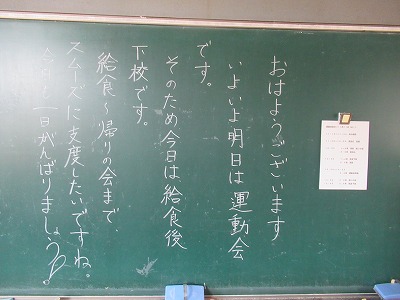 おはようございます
いよいよ明日は運動会
です。
そのため今日は給食後
下校です。
給食～帰りの会まで、
スムーズに支度したいですね。
今日も一日がんばりましょう。